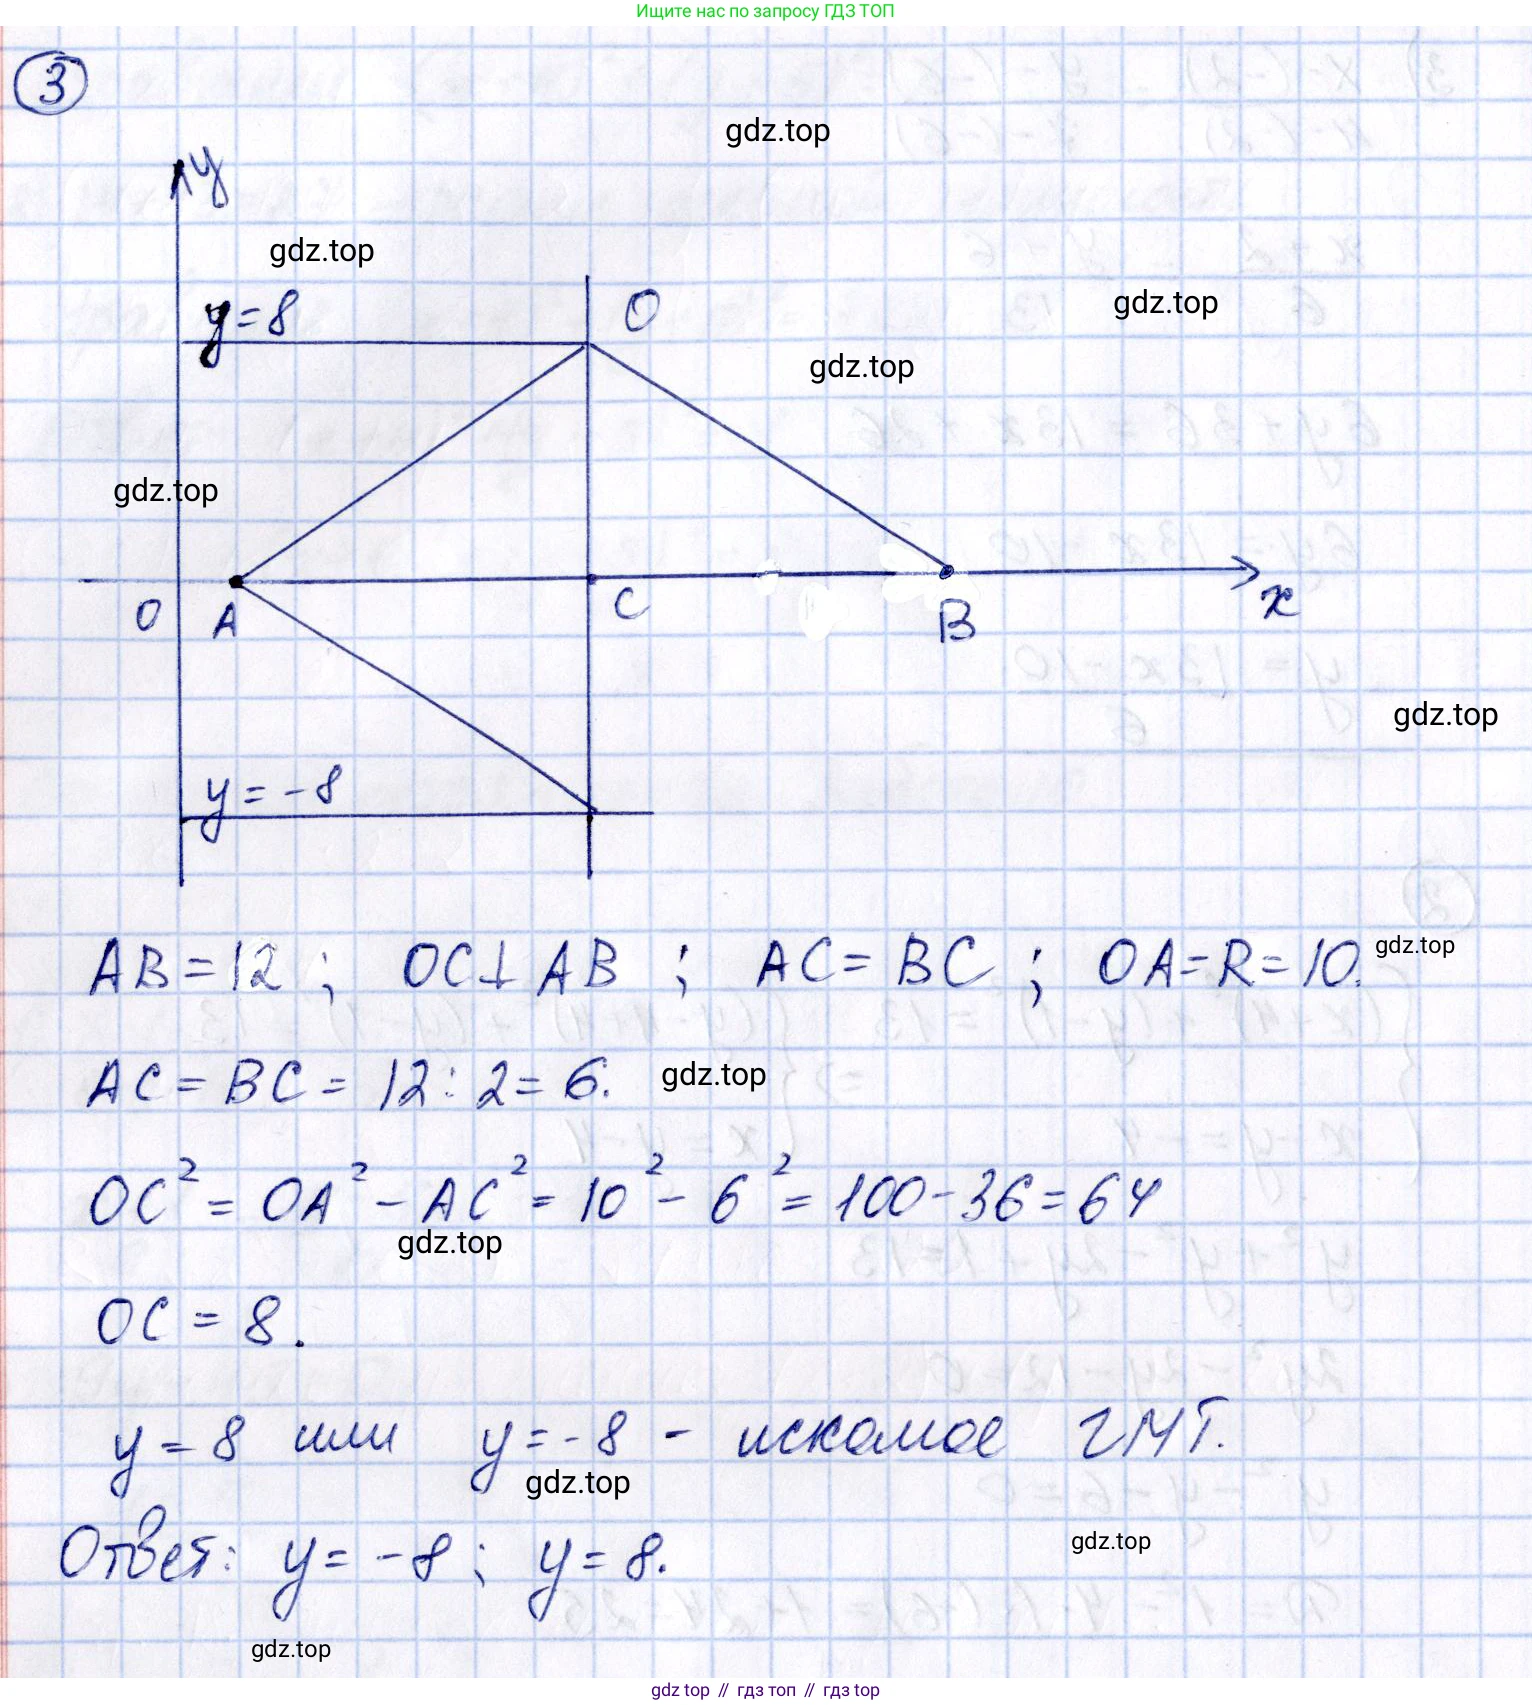 Ищите нас по запросу ГДЗ ТОП
3
gdz.top
y
gdz.top
y=8
O
gdz.top
gdz.top
gdz.top
O
A
C
B
x
gdz.top
y=-8
AB=12; OC⊥AB; AC=BC; OA=R=10.
gdz.top
AC=BC=12:2=6.
gdz.top
OC²=OA²-AC²=10²-6²=100-36=64
gdz.top
OC=8.
y=8 или y=-8 - искомое ГМТ.
gdz.top
Ответ: y=-8; y=8.
gdz.top
gdz.top
gdz top // гдз топ // гдз top